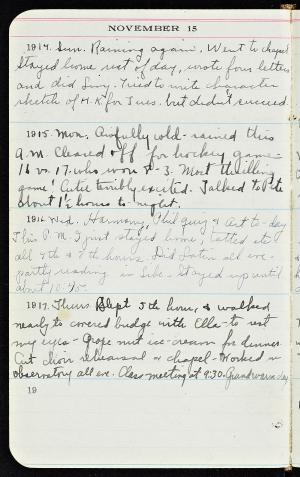 NOVEMBER 15
1914. Sun. Raining again. Went to chapel
Stayed home rest of day, wrote four letters
and did Livy. Tried to write character
sketch of M.K. for Tues. but didn't succeed.
1915. Mon. Awfully cold - rained this
A.M. Cleared off for hockey game
16 vs. 17. who won 4-3. Most thrilling
game! Cutie terribly excited. Talked to Pete
about 1½ hours to-night.
1916 Wed. Harmony, Phil quiz & Art to-day
This P.M. I just stayed home, tatted etc
all 7th & 8th hours. Did Latin all eve.
partly reading in Libe - Stayed up until
about 10:30.
1917. Thurs Slept 5th hour, & walked
nearly to covered bridge with Ella - to rest
my eyes - Grape nut ice-cream for dinner
Cut choir rehearsal & chapel - Worked in
observatory all eve. Class meeting at 9:30.
19